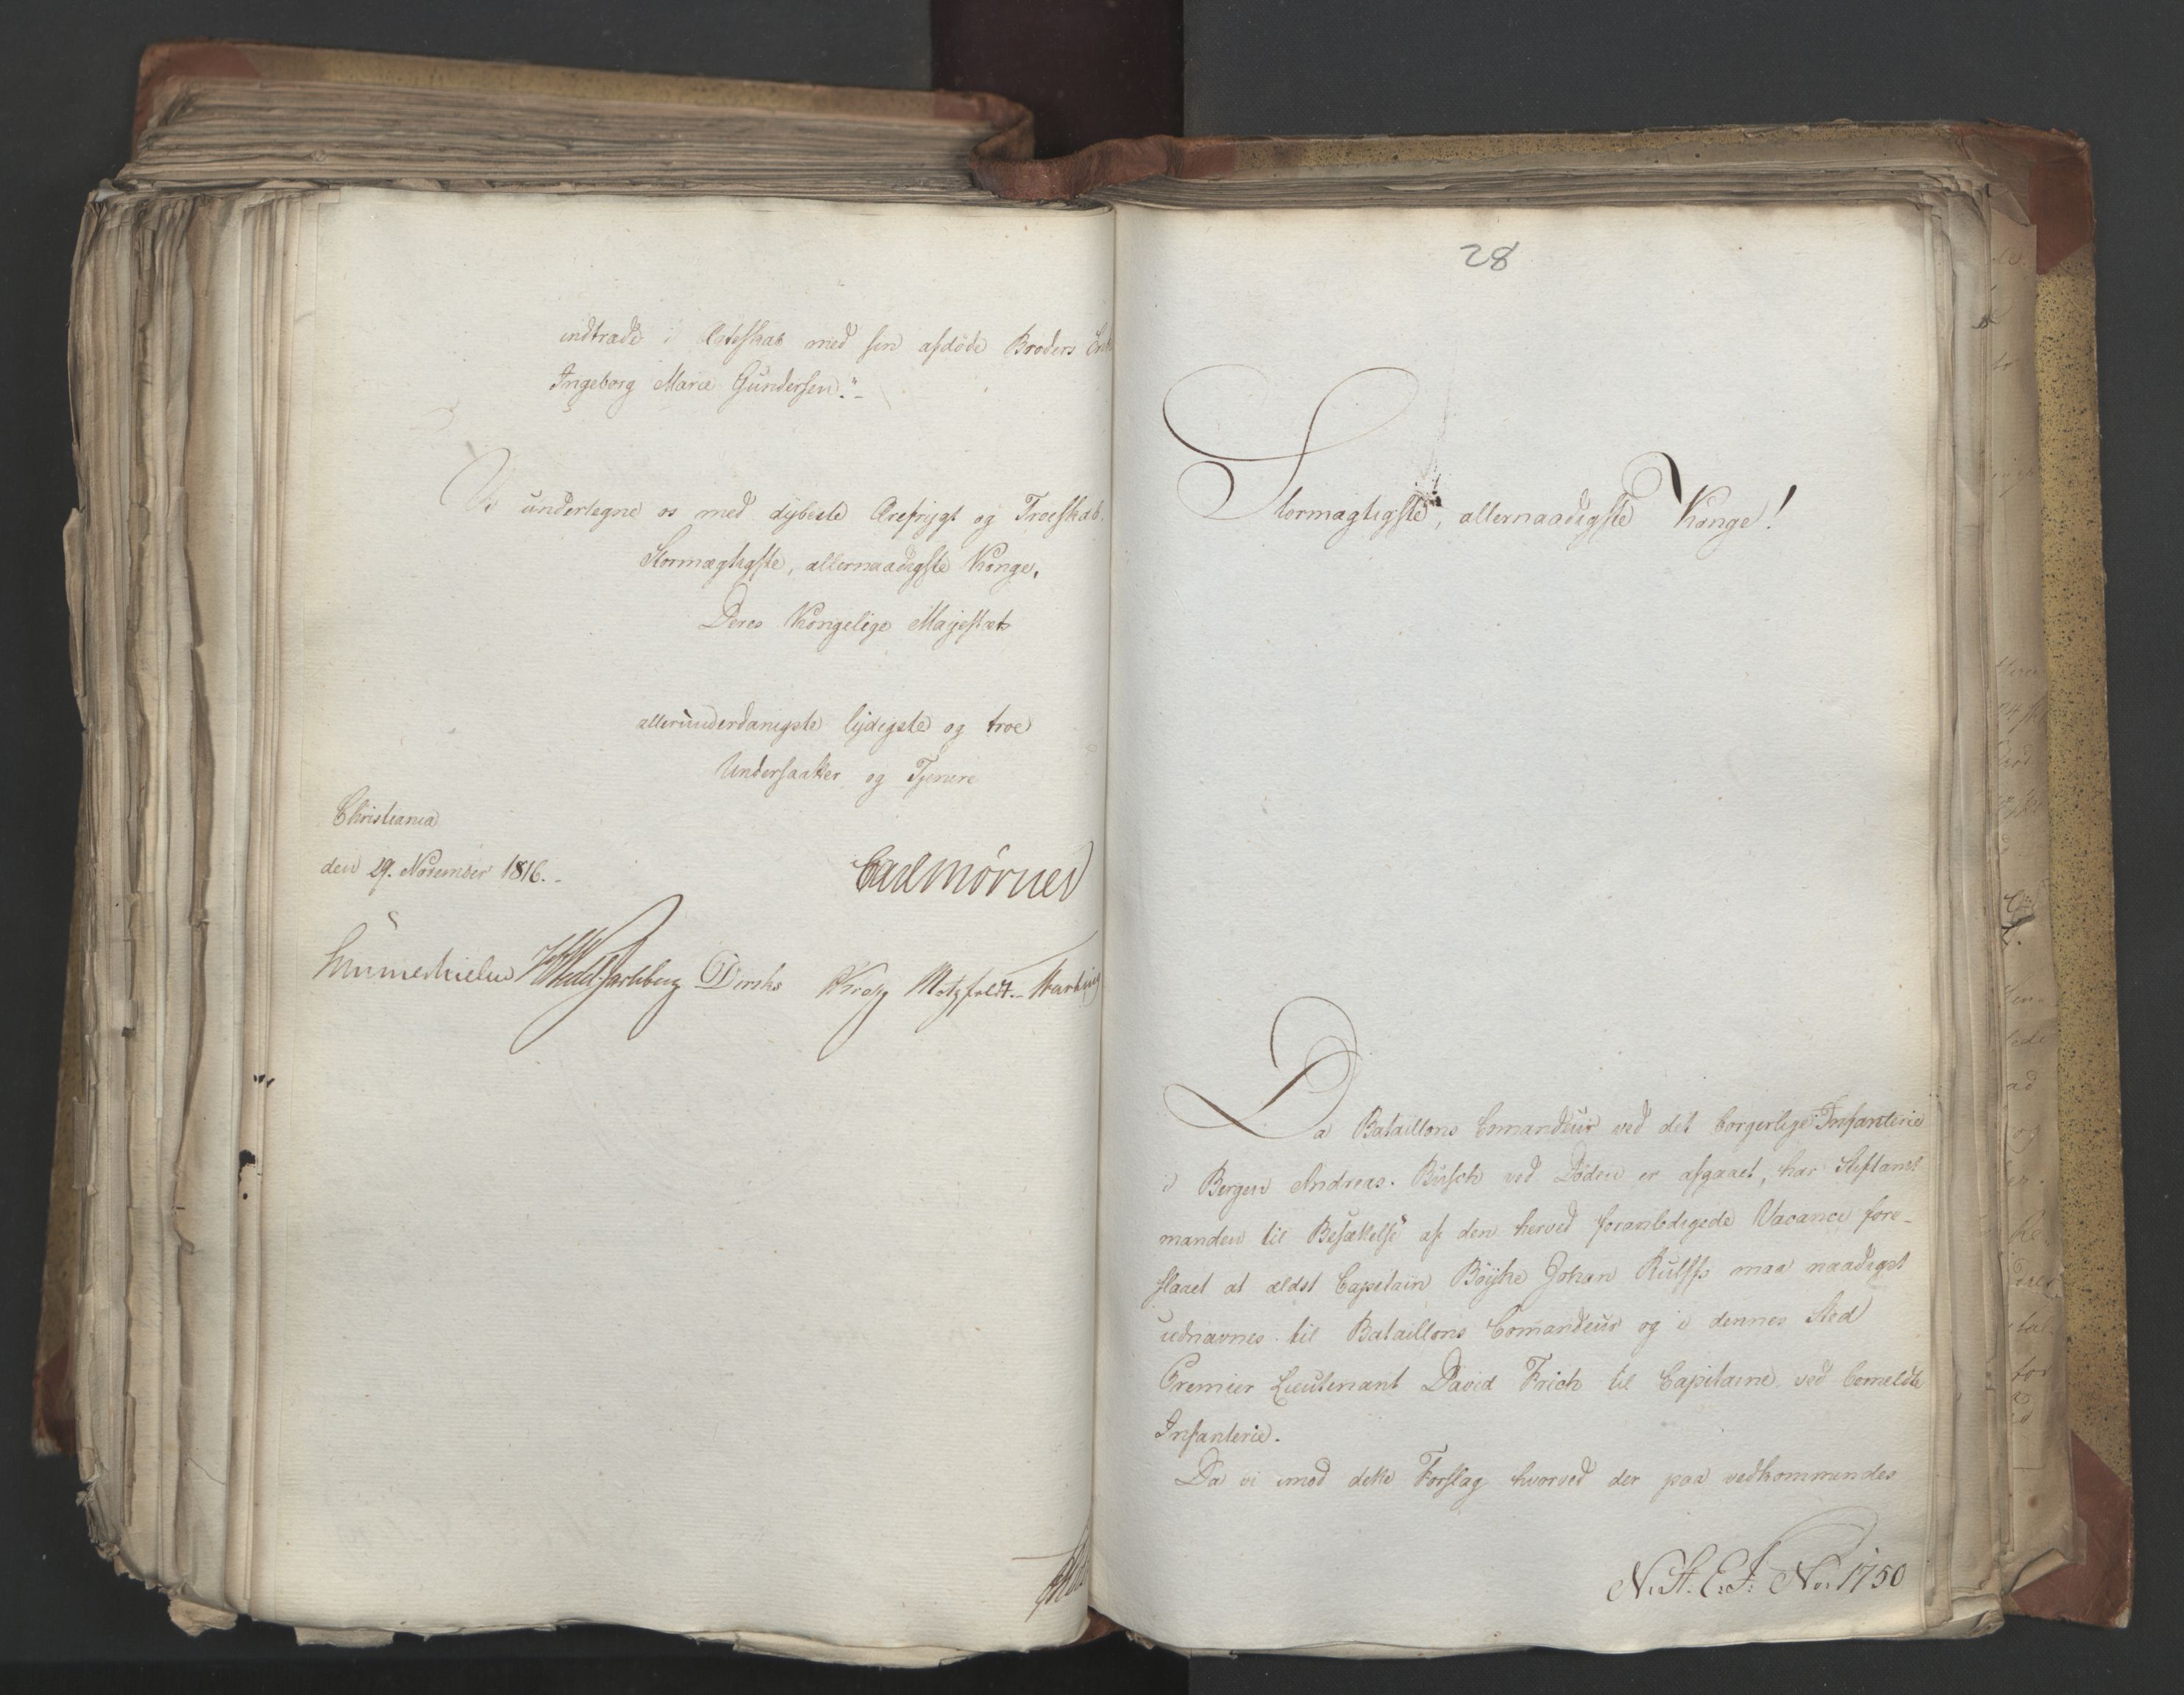 indtræde i Ægteskab med sin afdøde Broders Enke
Ingeborg Marie Gundersen."-
Vi undertegne os med dybeste Ærefrygt og Troeskab.
Stormægtigste, allernaadigste Konge,
Deres Kongelige Majestæts
allerunderdanigste lydigste og troe
Undersaatter og Tjenere
Christiania
den 29. November 1816.-
Carl Mörner
Sommerhielm HWedel Jarlsberg Diriks Krog Motzfeldt.-
28
Stormægtigste, allernaadigste Konge!
Da Bataillons Comandeur ved det borgerlige Infanterie
i Bergen Andreas Busch ved Døden er afgaaet, har Stiftamt
manden til Besættelse af den herved foranledigede Vacance fore-
slaaet at ældst Capitain Johan Rulffs maa naadigst
udnævnes til Bataillons Comandeur og i dennes Sted
Premier Lieutenant David Frich til Capitaine ved bemeldte
Infanterie.
Da vi imod dette Forslag hvorved der paa vedkommendes
N. St. E. J: No. 1750